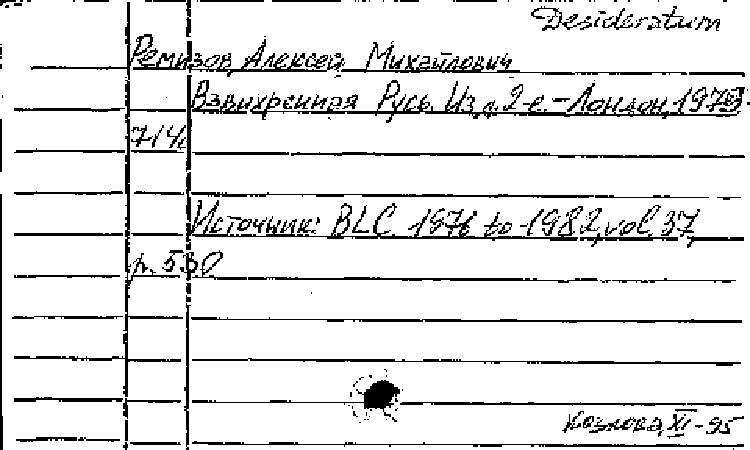 Desideratum
Ремизов, Алексей Михайлович
Взвихренная Русь. Изд. 2-е. - Лондон, 1979.
714с
Источник: BLC 1976 to 1982, vol. 37,
p. 530
Козлова, XI-95